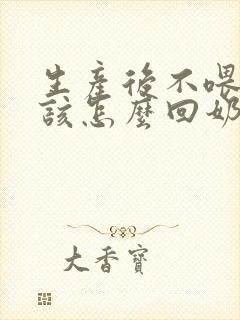 生產後不喂
該怎麼回奶
大香寶